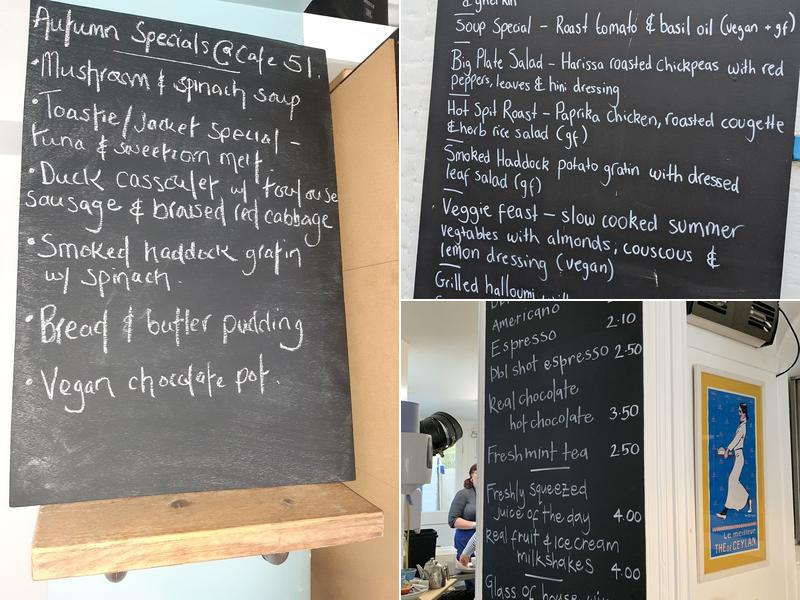 Autumn Specials @ Cafe 51.
• Mushroom & spinach soup
• Toastie/Jacket special –
tuna & sweetcorn melt
• Duck cassoulet w/ toulouse
sausage & braised red cabbage
• Smoked haddock gratin
w/ spinach.
• Bread & butter pudding
• Vegan chocolate pot.
& gherkin
Soup Special – Roast tomato & basil oil (vegan + gf)
Big Plate Salad – Harissa roasted chickpeas with red
peppers, leaves & hini dressing
Hot Spit Roast – Paprika chicken, roasted cougette
& herb rice salad (gf)
Smoked Haddock potato gratin with dressed
leaf salad (gf)
· Veggie feast – slow cooked summer
vegtables with almonds, couscous &
lemon dressing (vegan)
Grilled halloumi
Americano
Espresso 2.10
Dbl shot espresso 2.50
Real chocolate
hot chocolate 3.50
Fresh mint tea 2.50
Freshly squeezed
juice of the day 4.00
Real fruit & ice cream
milkshakes 4.00
Glass of house
Le meilleur
THÉ de CEYLAN